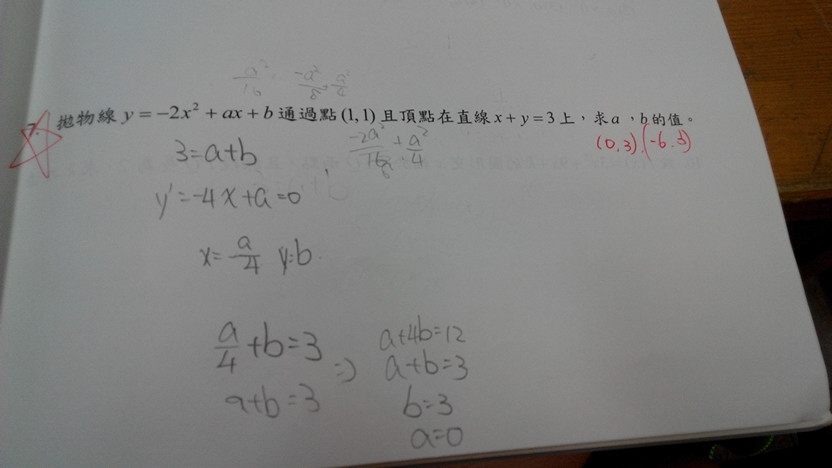 7. 拋物線 y = -2x² + ax + b 通過點 (1,1) 且頂點在直線 x + y = 3 上，求 a ，b 的值。
(0,3),(-6,
3=a+b
-2a²/16 + a²/4
y'=-4x+a=0
x=a/4 y=b
a/4+b=3 => a+4b=12
a+b=3 a+b=3
b=3
a=0